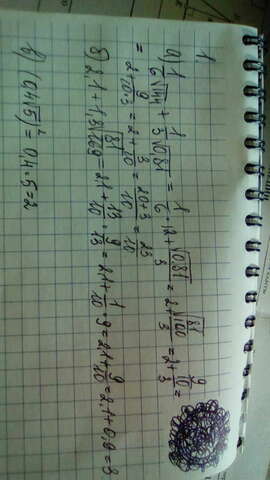 1.
а) 1/6 √144 + 1/3 √0,81 = 1/6 · 12 + √0,81/3 = 2 + √(81/100)/3 = 2 + (9/10)/3 =
= 2 + 9/(10·3) = 2 + 3/10 = (20+3)/10 = 23/10
б) 2,1 + 1,3 √(81/169) = 2,1 + 13/10 · 9/13 = 2,1 + 1/10 · 9 = 2,1 + 9/10 = 2,1 + 0,9 = 3
в) (0,4√5)² = 0,4 · 5 = 2